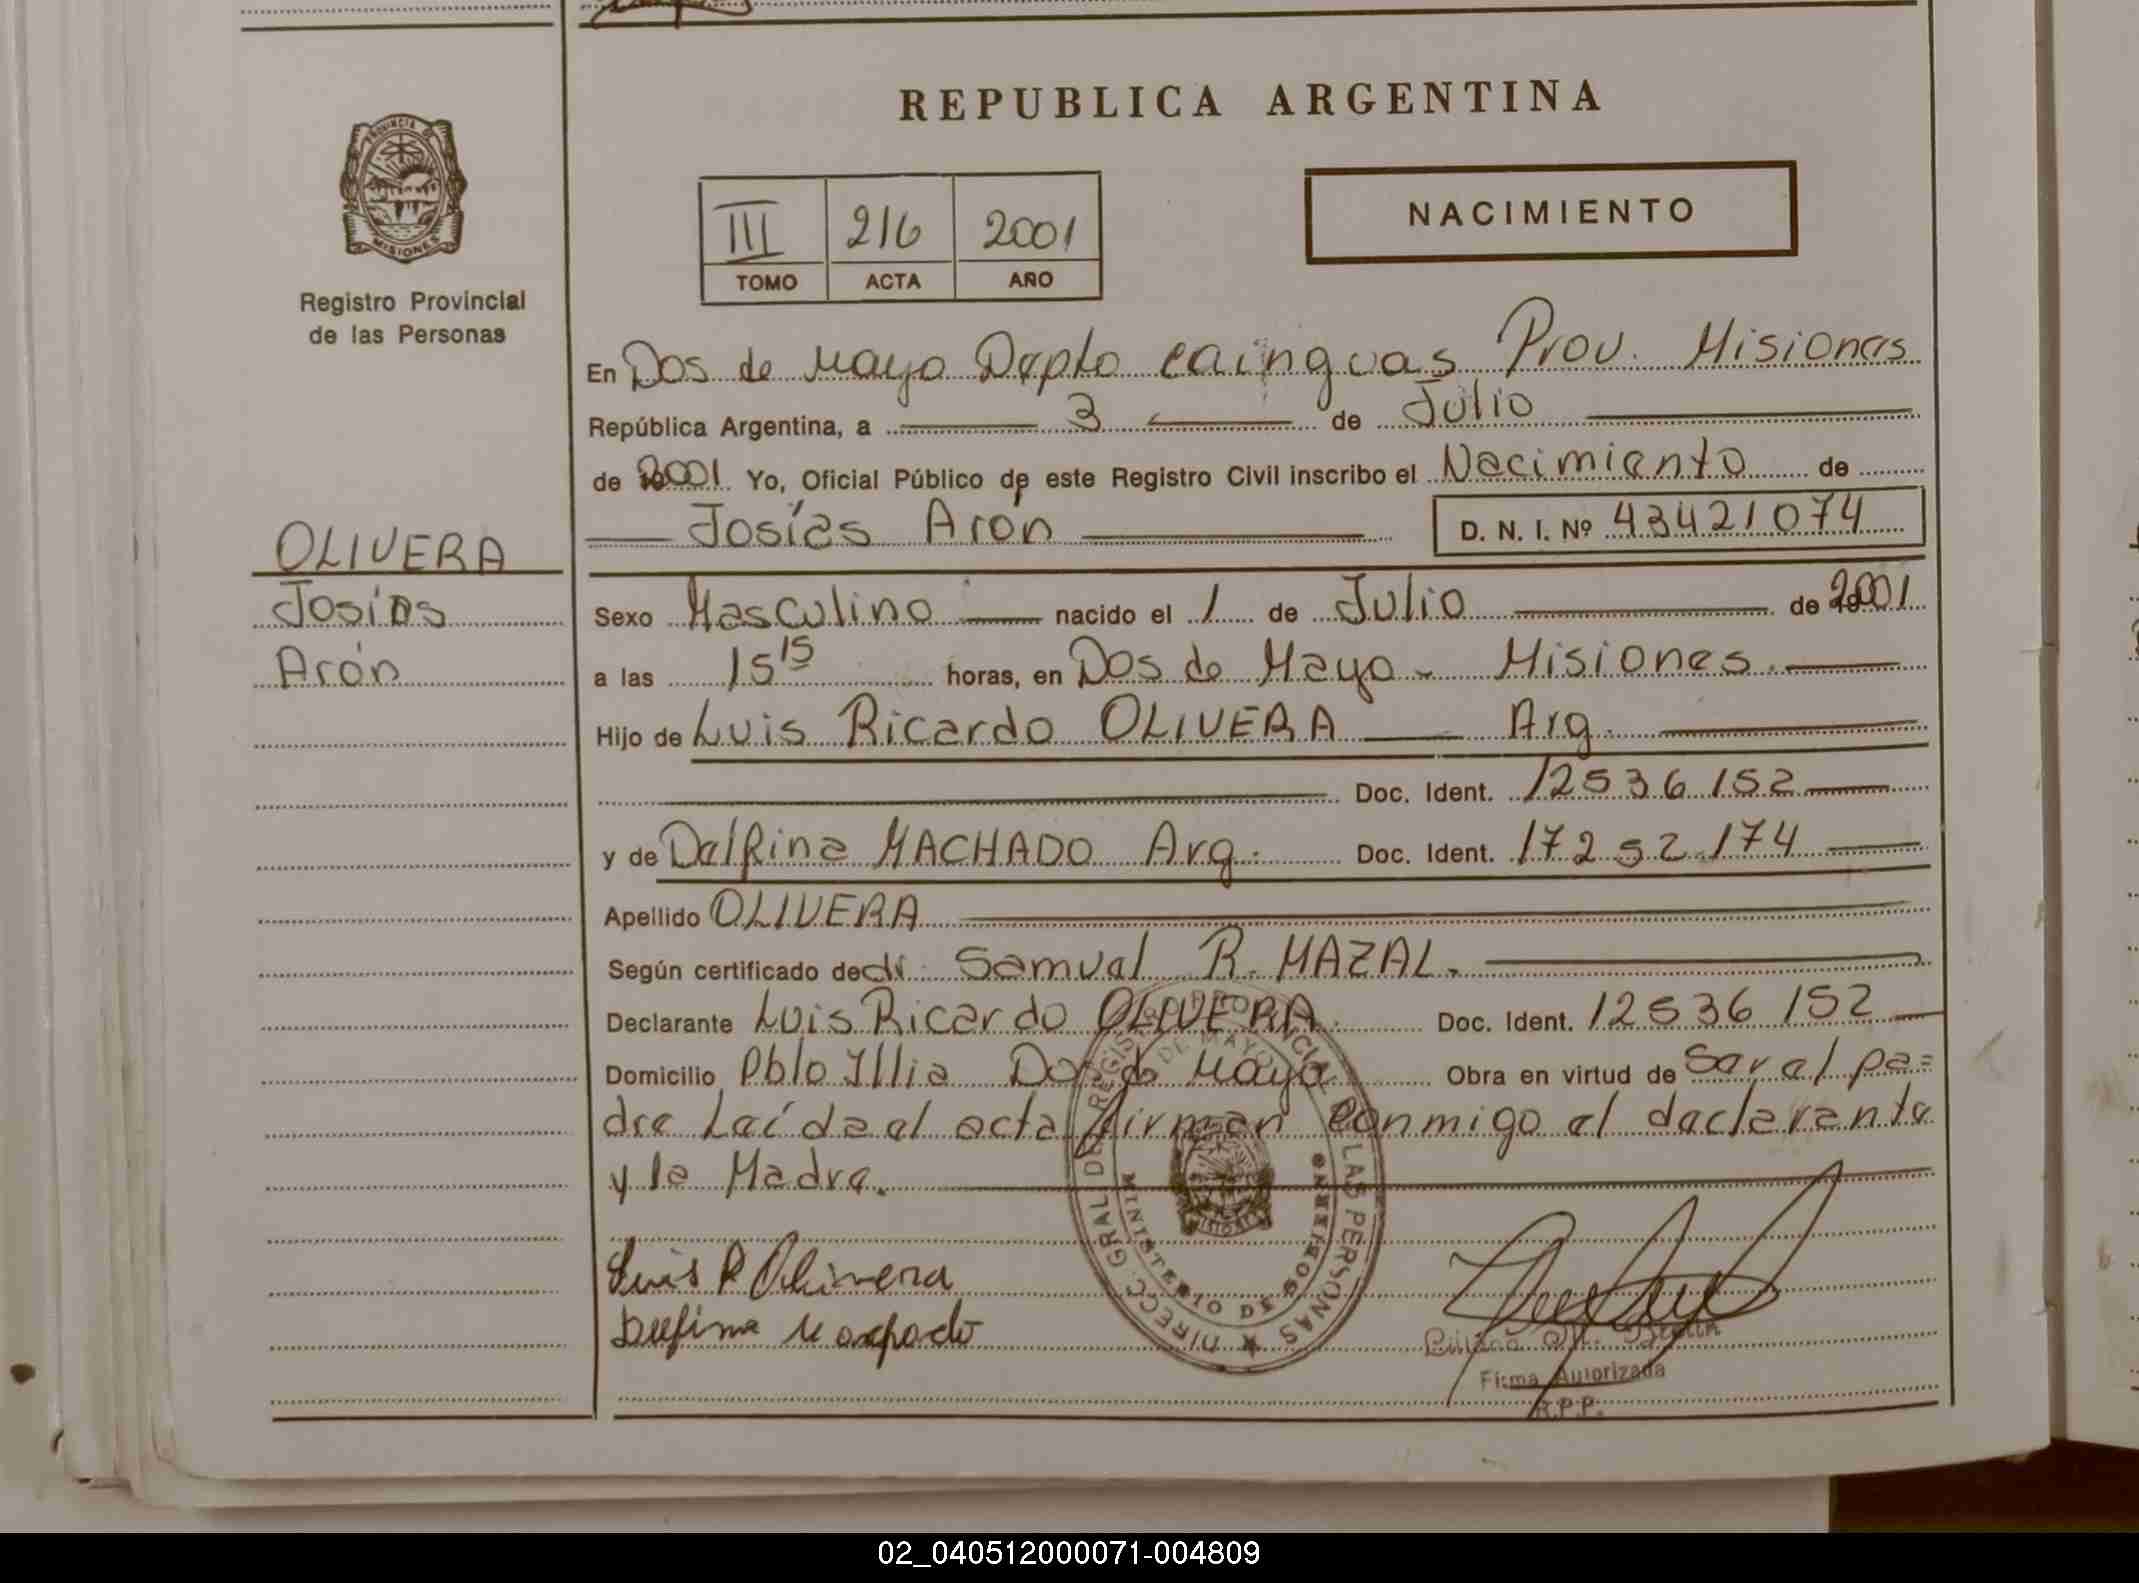 REPUBLICA ARGENTINA
PROVINCIA DE
MISIONES
Registro Provincial
de las Personas
III 216 2001
TOMO ACTA AÑO
NACIMIENTO
En Dos de Mayo Depto Cainguas Prov. Misiones
República Argentina, a 3 de Julio
de 2001 Yo, Oficial Público de este Registro Civil inscribo el Nacimiento de
Josías Arón D. N. I. Nº 43421074
OLIVERA
Josías
Arón
Sexo Masculino nacido el 1 de Julio de 2001
a las 15 15 horas, en Dos de Mayo - Misiones.
Hijo de Luis Ricardo OLIVERA Arg.
Doc. Ident. 12536152
y de Delfina MACHADO Arg. Doc. Ident. 17252174
Apellido OLIVERA
Según certificado de dr. Samuel R. MAZAL.
Declarante Luis Ricardo OLIVERA Doc. Ident. 12536152
Domicilio Pblo Illia Dos de Mayo Obra en virtud de Ser el pa=
dre Leída el acta firman conmigo el declarante
y la Madre.
DIRECC. GRAL DEL REGISTRO PROVINCIAL DE LAS PERSONAS
DE MAYO
MINISTERIO DE GOBIERNO
Luis R Olivera
Delfina Machado
Firma Autorizada
R.P.P.
02_040512000071-004809